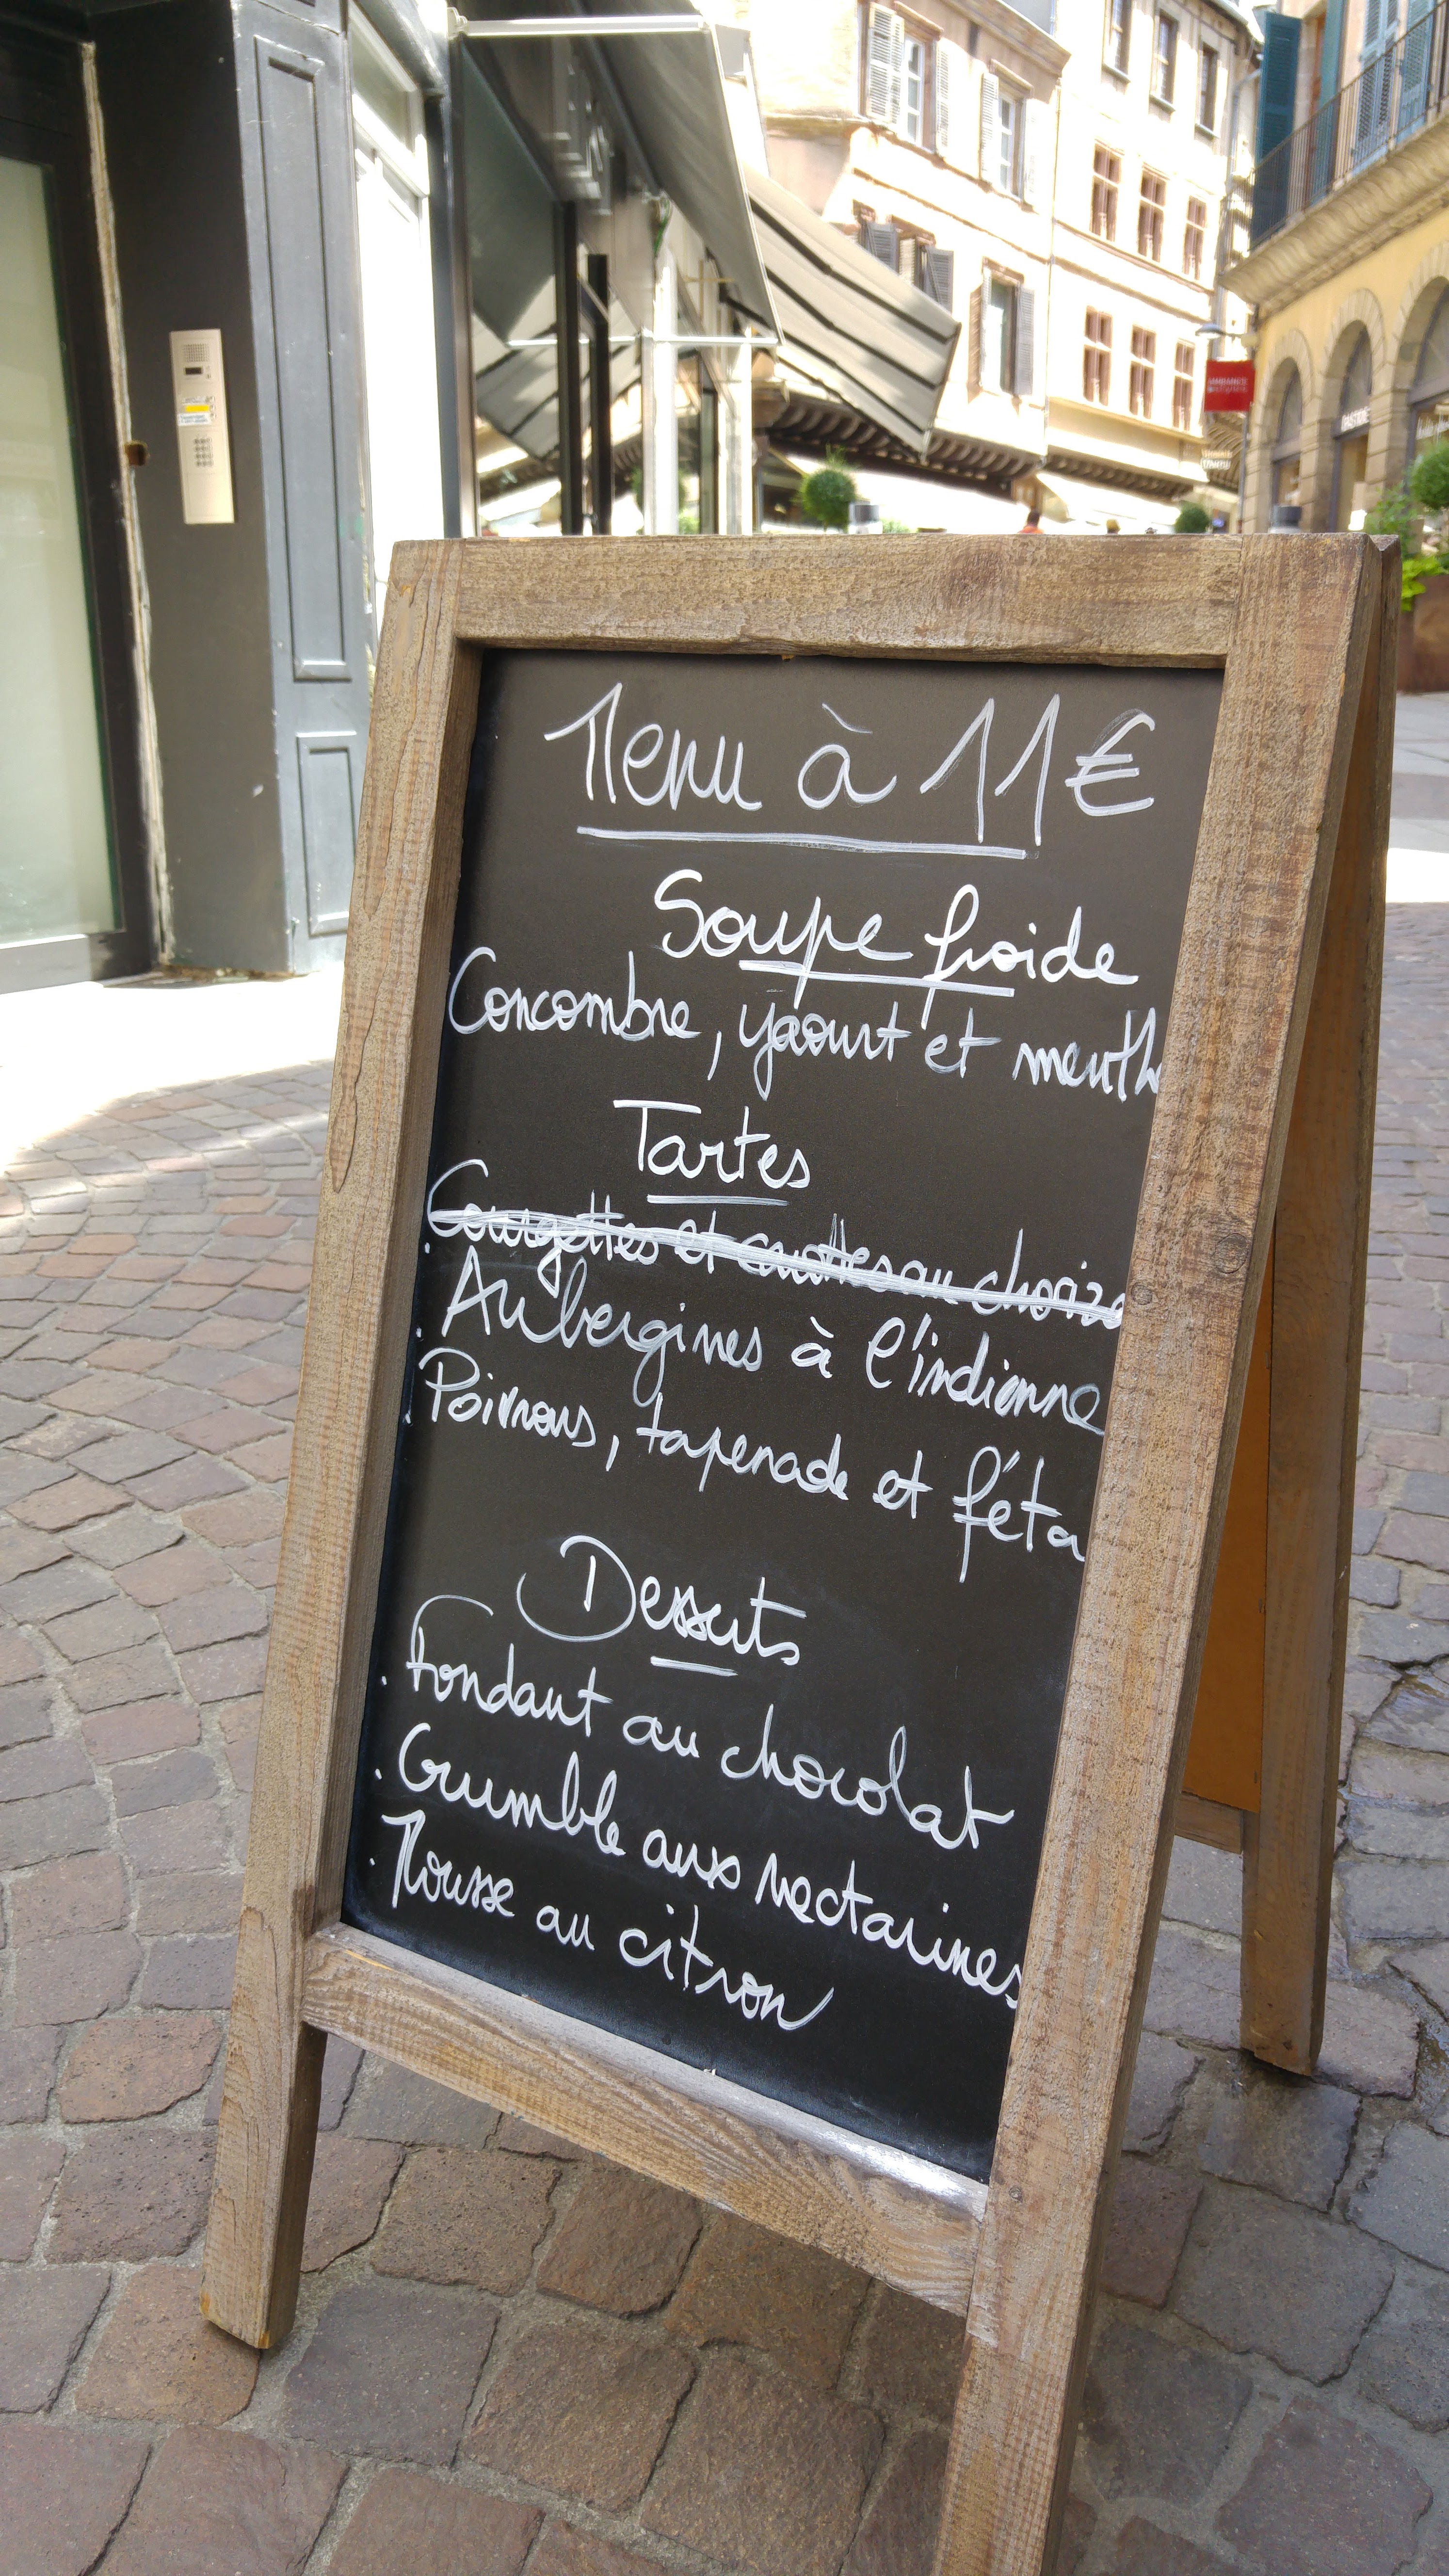 BASTIDE
Menu à 11€
Soupe froide
Concombre, yaourt et menthe
Tartes
. Courgettes et carottes au chorizo
. Aubergines à l'indienne
. Poivrons, tapenade et féta
Desserts
. Fondant au chocolat
. Crumble aux nectarines
. Mousse au citron